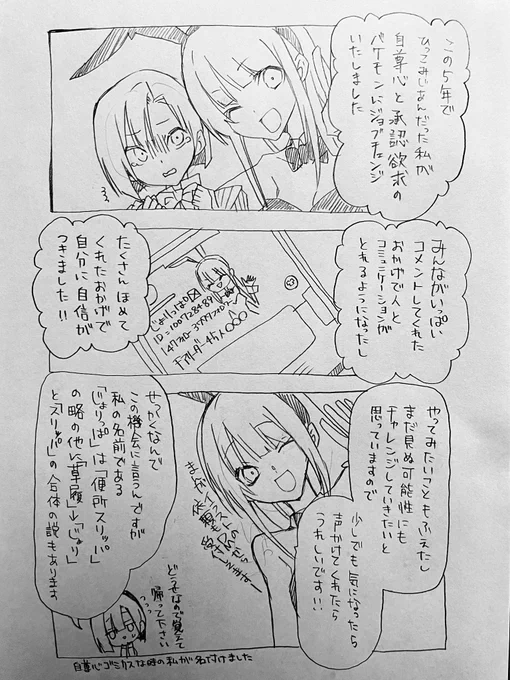 この5年で
ひってみじめんだった私が
自尊心と承認欲求の
バケモンにジョブチェンジ
いたしました
みんながいっぱい
コメントしてくれた
おかげで人と
コミュニケーションが
とれるようになったし
たくさんほめて
くれたおかげで
自分に自信が
つきました!!
じょりっぱ
やってみたいこともふえたし
まだ見ぬ可能性にも
チャレンジしていきたいと
思っていますので
少しでも気になったら
声かけてくれたら
うれしいです!!
せっかくなんで
この機会に言うんですが
私の名前である
「じょりっぱ」は「便所スリッパ」
の略の他に「草履」→「じょり」
と「スリッパ」の合体の説もあります
どうせなので覚えて
帰って下さい
っっっ
自尊心ゴミクスな時の私が名付けました